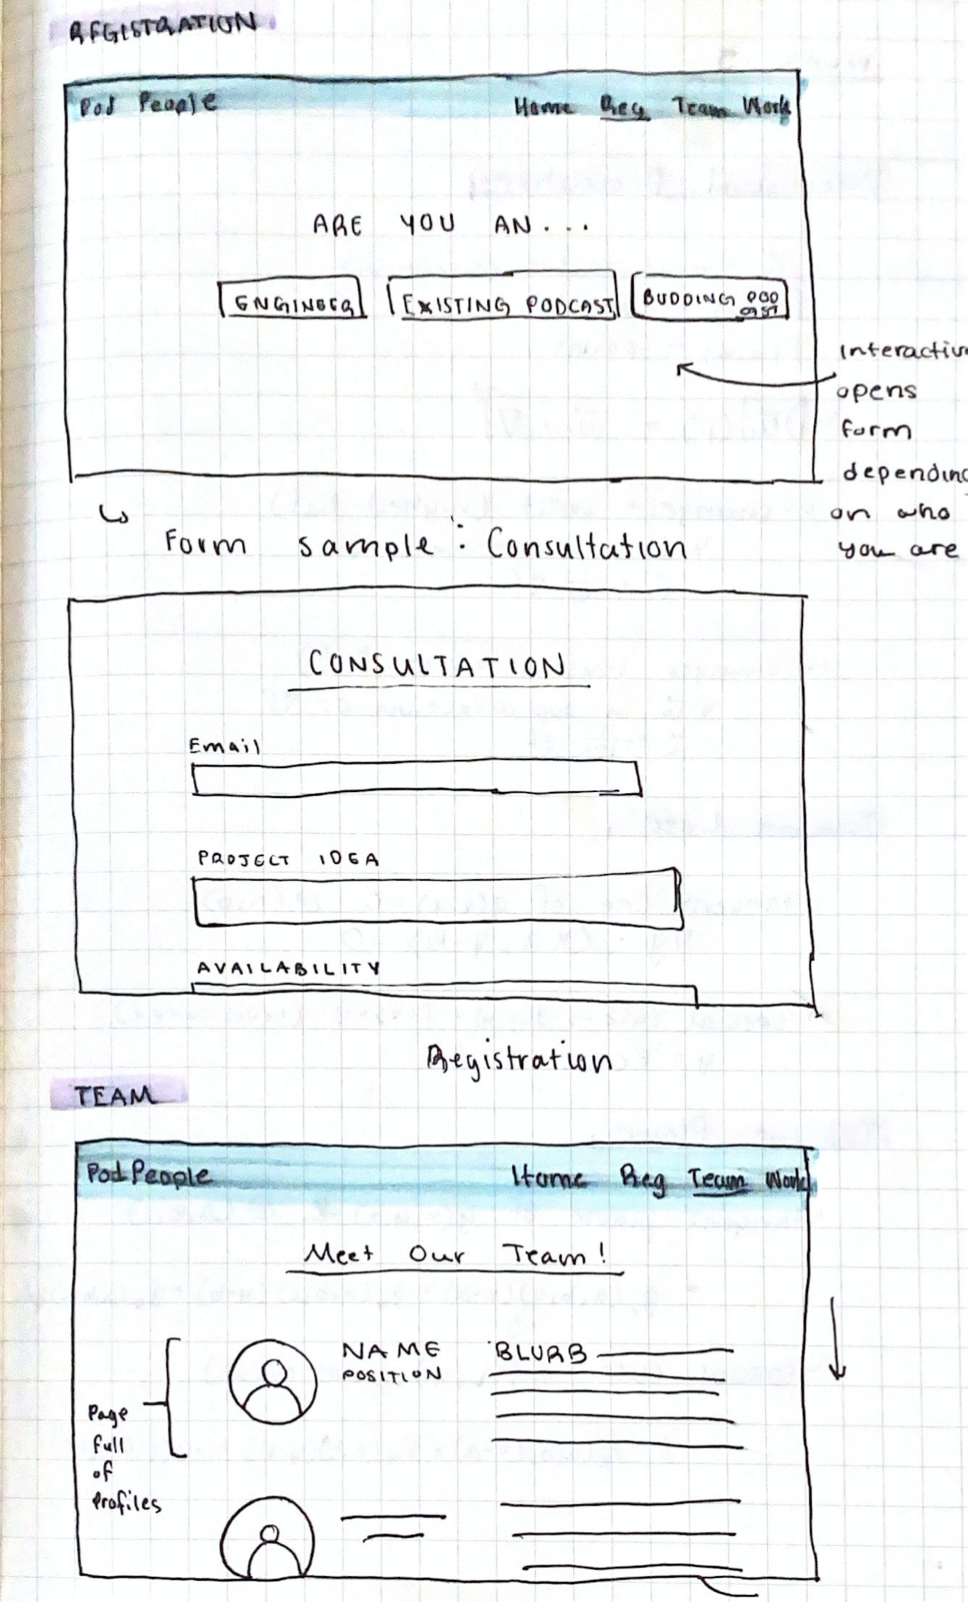 REGISTRATION
Pod People Home Reg Team Work
ARE YOU AN...
ENGINEER EXISTING PODCAST BUDDING POD
CAST
Interactive
opens
form
depending
on who
you are
↳
Form sample: Consultation
CONSULTATION
Email
PROJECT IDEA
AVAILABILITY
Registration
TEAM
Pod People Home Reg Team Work
Meet Our Team!
NAME BLURB
POSITION
Page
full
of
profiles